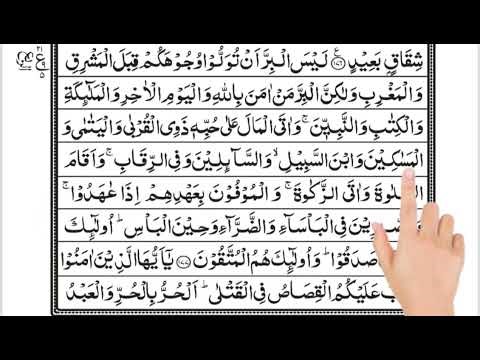 شِقَاقٍۭ بَعِيْدٍ ﴿۱۷۶﴾ لَيْسَ الْبِرَّ اَنْ تُوَلُّوْا وُجُوْهَكُمْ قِبَلَ الْمَشْرِقِ
وَالْمَغْرِبِ وَلٰكِنَّ الْبِرَّ مَنْ اٰمَنَ بِاللّٰهِ وَالْيَوْمِ الْاٰخِرِ وَالْمَلٰٓئِكَةِ
وَالْكِتٰبِ وَالنَّبِيّٖنَ ۚ وَاٰتَى الْمَالَ عَلٰى حُبِّهٖ ذَوِى الْقُرْبٰى وَالْيَتٰمٰى
وَالْمَسٰكِيْنَ وَابْنَ السَّبِيْلِ ۙ وَالسَّآئِلِيْنَ وَفِى الرِّقَابِ ۚ وَاَقَامَ
الصَّلٰوةَ وَاٰتَى الزَّكٰوةَ ۚ وَالْمُوْفُوْنَ بِعَهْدِهِمْ اِذَا عٰهَدُوْا ۚ
وَالصّٰبِرِيْنَ فِى الْبَاْسَآءِ وَالضَّرَّآءِ وَحِيْنَ الْبَاْسِ ؕ اُولٰٓئِكَ
صَدَقُوْا ؕ وَاُولٰٓئِكَ هُمُ الْمُتَّقُوْنَ ﴿۱۷۷﴾ يٰٓاَيُّهَا الَّذِيْنَ اٰمَنُوْا
عَلَيْكُمُ الْقِصَاصُ فِى الْقَتْلٰى ؕ اَلْحُرُّ بِالْحُرِّ وَالْعَبْدُ